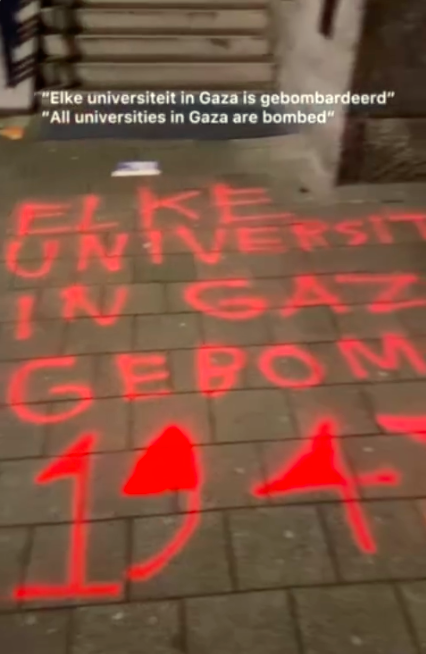 "Elke universiteit in Gaza is gebombardeerd"
"All universities in Gaza are bombed"
ELKE
UNIVERSIT
IN GAZ
GEBOM
194